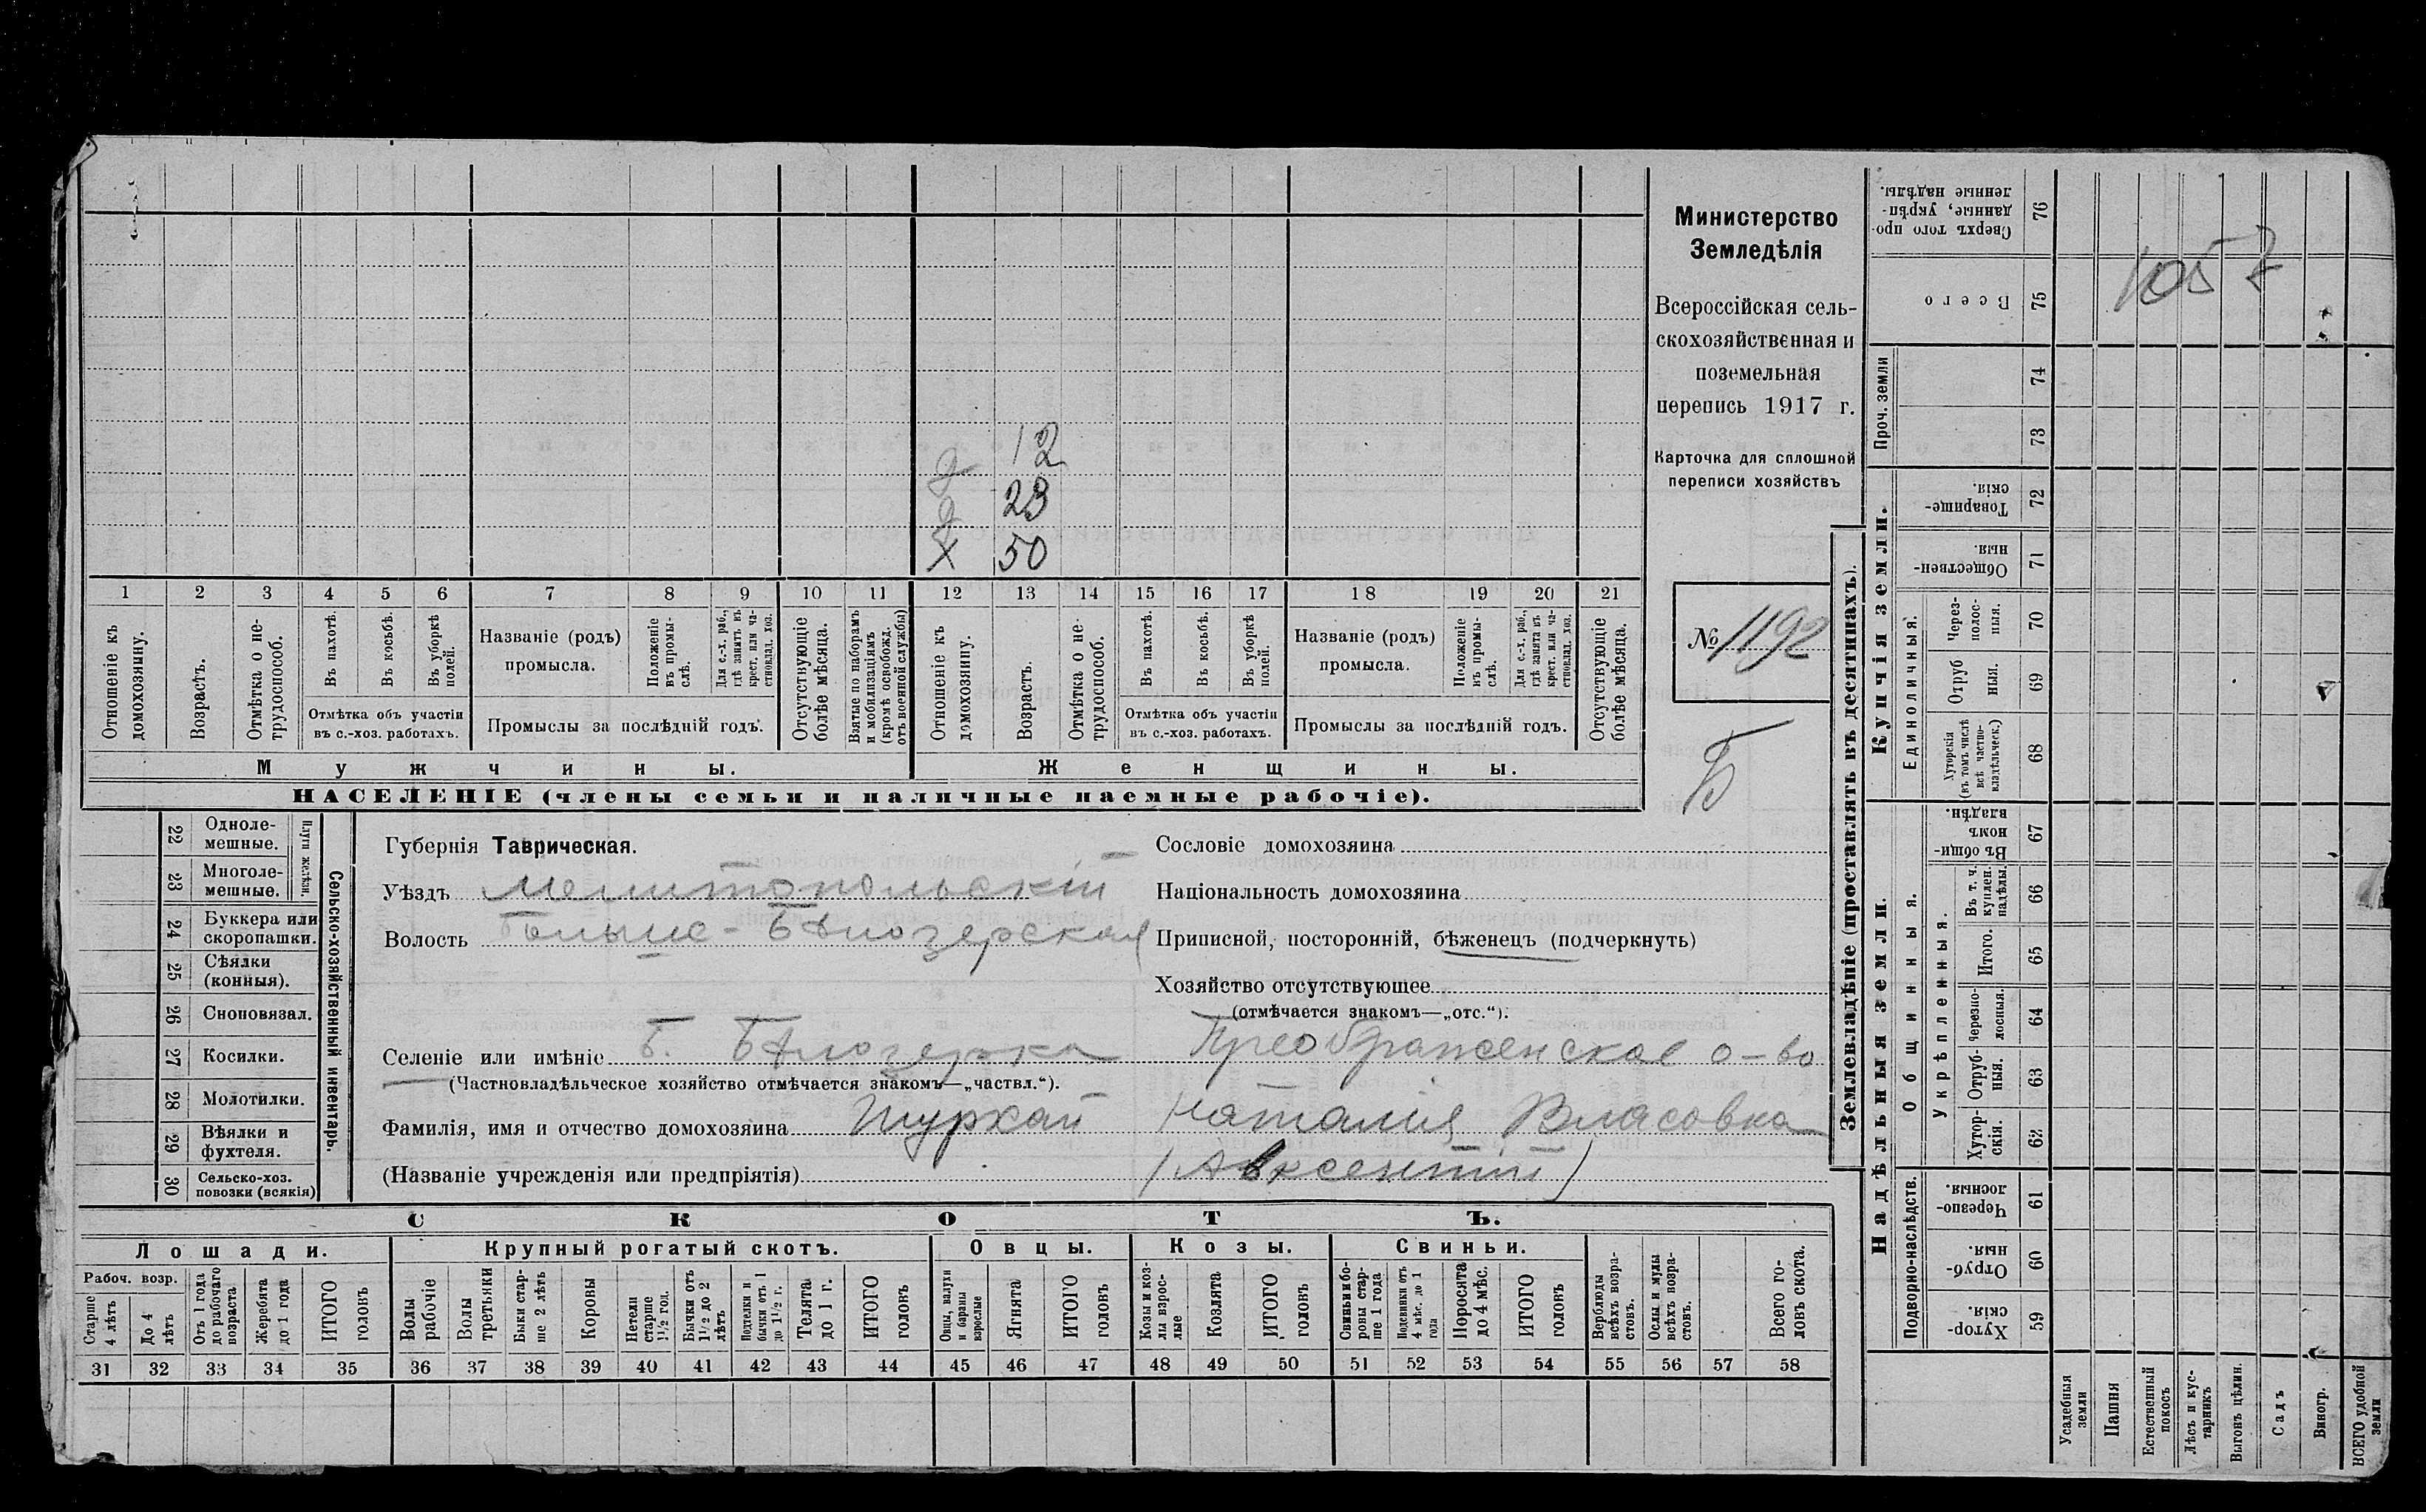 12
д 23
х 50
1 2 3 4 5 6 7 8 9 10 11 12 13 14 15 16 17 18 19 20 21
Отношеніе къ домохозяину.
Возрастъ.
Отмѣтка о не-трудоспособ.
Въ пахотѣ.
Въ косьбѣ.
Въ уборкѣ полей.
Отмѣтка объ участіи
въ с.-хоз. работахъ.
Названіе (родъ)
промысла.
Положеніе въ промы-слѣ.
Для с.-х. раб., гдѣ занятъ въ крест. или ча-стновлад. хоз.
Промыслы за послѣдній годъ.
Отсутствующіе болѣе мѣсяца.
Взятые по наборамъ и мобилизаціямъ (кромѣ освобожд. отъ военной службы)
Отношеніе къ домохозяину.
Возрастъ.
Отмѣтка о не-трудоспособ.
Въ пахотѣ.
Въ косьбѣ.
Въ уборкѣ полей.
Отмѣтка объ участіи
въ с.-хоз. работахъ.
Названіе (родъ)
промысла.
Положеніе въ промы-слѣ.
Для с.-х. раб., гдѣ занята въ крест. или ча-стновлад. хоз.
Промыслы за послѣдній годъ.
Отсутствующіе болѣе мѣсяца.
Мужчины.
Женщины.
НАСЕЛЕНІЕ (члены семьи и наличные наемные рабочіе).
Министерство
Земледѣлія
Всероссійская сель-
скохозяйственная и
поземельная
перепись 1917 г.
Карточка для сплошной
переписи хозяйствъ
№ 1192
Б
22 Одноле-мешные.
23 Многоле-мешные.
Плуги желѣзн.
24 Буккера или скоропашки.
25 Сѣялки (конныя).
26 Сноповязал.
27 Косилки.
28 Молотилки.
29 Вѣялки и фухтеля.
30 Сельско-хоз. повозки (всякія)
Сельско-хозяйственный инвентарь.
Губернія Таврическая.
Уѣздъ Мелитопольскій
Волость Больше-Бѣлозерская
Селеніе или имѣніе Б. Бѣлозерка Преображенское о-во
(Частновладѣльческое хозяйство отмѣчается знакомъ—„частвл.“).
Фамилія, имя и отчество домохозяина Шурхай Наталія Власовна
(Названіе учрежденія или предпріятія) (Авксентій)
Сословіе домохозяина
Національность домохозяина
Приписной, посторонній, бѣженецъ (подчеркнуть)
Хозяйство отсутствующее
(отмѣчается знакомъ—„отс.“).
СКОТЪ.
Лошади.
Крупный рогатый скотъ.
Овцы.
Козы.
Свиньи.
Рабоч. возр.
Старше 4 лѣтъ
До 4 лѣтъ
Отъ 1 года до рабочаго возраста
Жеребята до 1 года
ИТОГО головъ
Волы рабочіе
Волы третьяки
Быки стар-ше 2 лѣтъ
Коровы
Нетели старше 1½ год.
Бычки отъ 1½ до 2 лѣтъ
Подтелки и бычки отъ 1 до 1½ г.
Телята до 1 г.
ИТОГО головъ
Овцы, валухи и бараны взрослые
Ягнята
ИТОГО головъ
Козы и коз-лы взрос-лые
Козлята
ИТОГО головъ
Свиньи и бо-ровы стар-ше 1 года
Подсвинки отъ 4 мѣс. до 1 года
Поросята до 4 мѣс.
ИТОГО головъ
Верблюды всѣхъ возра-стовъ.
Ослы и мулы всѣхъ возра-стовъ.
Всего го-ловъ скота.
31 32 33 34 35 36 37 38 39 40 41 42 43 44 45 46 47 48 49 50 51 52 53 54 55 56 57 58
Землевладѣніе (проставлять въ десятинахъ).
Надѣльныя земли.
Купчія земли.
Проч. земли
Подворно-наслѣдств.
Общинныя.
Укрѣпленныя.
Единоличныя.
Сверхъ того про-данные, укрѣп-ленные надѣлы. 76
Всего 75
74
73
Товарище-скія. 72
Обществен-ныя. 71
Через-полос-ныя. 70
Отруб ныя. 69
Хуторскія (въ томъ числѣ всѣ частно-владѣльческ.) 68
Въ общин-номъ владѣн. 67
Въ т. ч. куплен. надѣлы. 66
Итого. 65
Черезпо-лосныя. 64
Отруб-ныя. 63
Хутор-скія. 62
Черезпо-лосныя. 61
Отруб-ныя. 60
Хутор-скія. 59
Усадебныя земли
Пашня
Естественный покосъ
Лѣсъ и кус-тарникъ
Выгонъ цѣлин.
Садъ
Виногр.
ВСЕГО удобной земли
1057